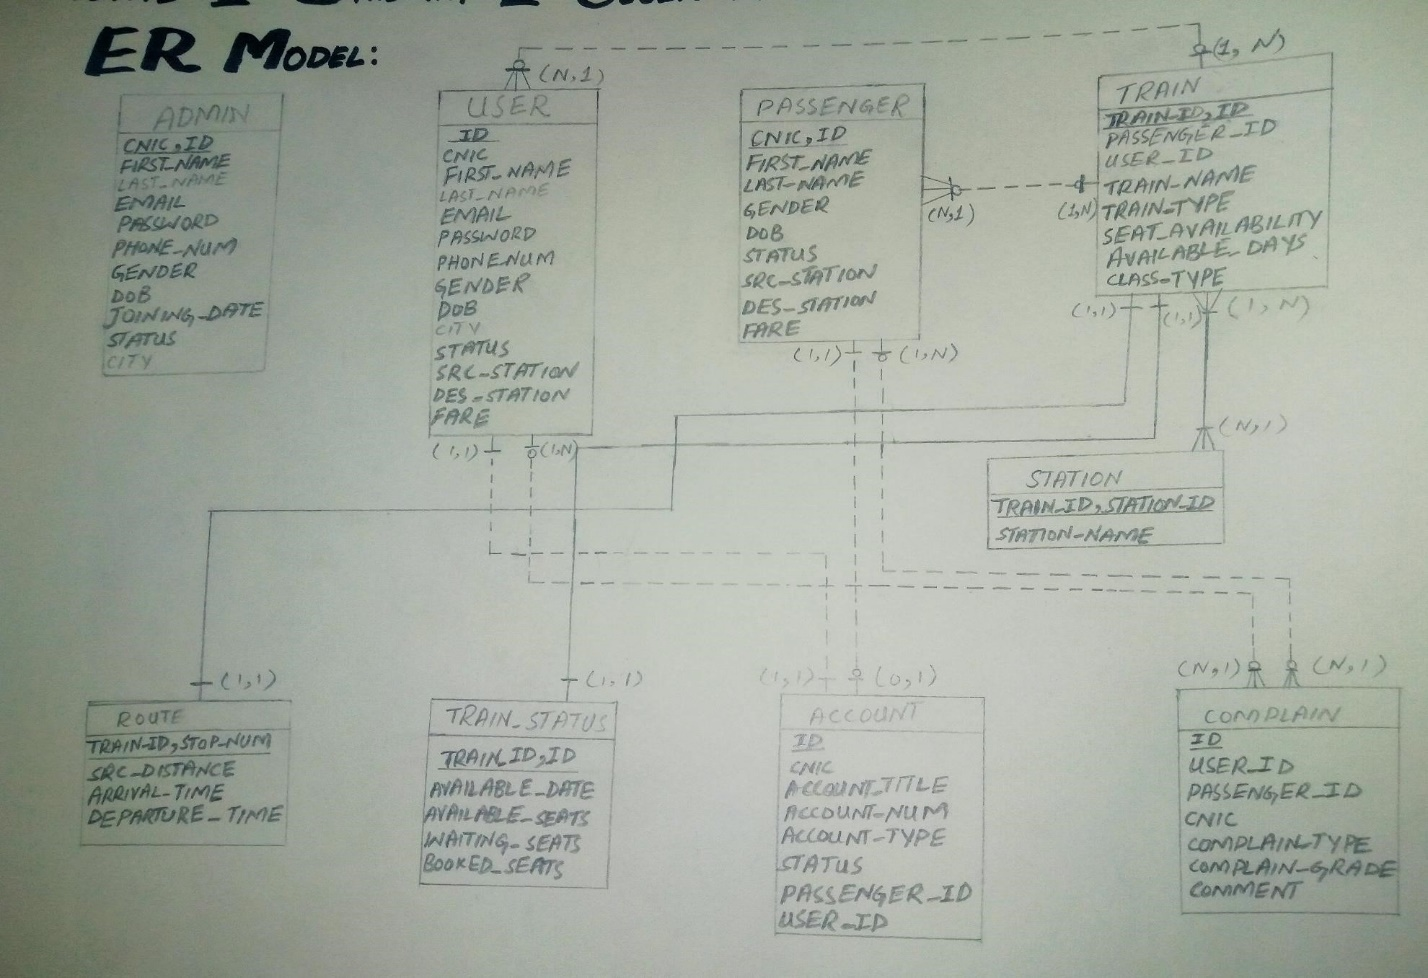 ER MODEL:
(N,1)
(1, N)
ADMIN
CNIC,ID
FIRST_NAME
LAST_NAME
EMAIL
PASSWORD
PHONE_NUM
GENDER
DOB
JOINING_DATE
STATUS
CITY
USER
ID
CNIC
FIRST_NAME
LAST_NAME
EMAIL
PASSWORD
PHONENUM
GENDER
DOB
CITY
STATUS
SRC_STATION
DES_STATION
FARE
(1,1)
(1,N)
PASSENGER
CNIC,ID
FIRST_NAME
LAST_NAME
GENDER
DOB
STATUS
SRC_STATION
DES_STATION
FARE
(N,1)
(1,N)
(1,1)
(1,N)
TRAIN
TRAIN_ID,ID
PASSENGER_ID
USER_ID
TRAIN_NAME
TRAIN_TYPE
SEAT_AVAILABILITY
AVAILABLE_DAYS
CLASS_TYPE
(1,1)
(1,1)
(1, N)
(N,1)
STATION
TRAIN_ID,STATION_ID
STATION_NAME
(1,1)
ROUTE
TRAIN_ID,STOP_NUM
SRC_DISTANCE
ARRIVAL_TIME
DEPARTURE_TIME
(1,1)
TRAIN_STATUS
TRAIN_ID,ID
AVAILABLE_DATE
AVAILABLE_SEATS
WAITING_SEATS
BOOKED_SEATS
(1,1)
(0,1)
ACCOUNT
ID
CNIC
ACCOUNT_TITLE
ACCOUNT_NUM
ACCOUNT_TYPE
STATUS
PASSENGER_ID
USER_ID
(N,1)
(N,1)
COMPLAIN
ID
USER_ID
PASSENGER_ID
CNIC
COMPLAIN_TYPE
COMPLAIN_GRADE
COMMENT